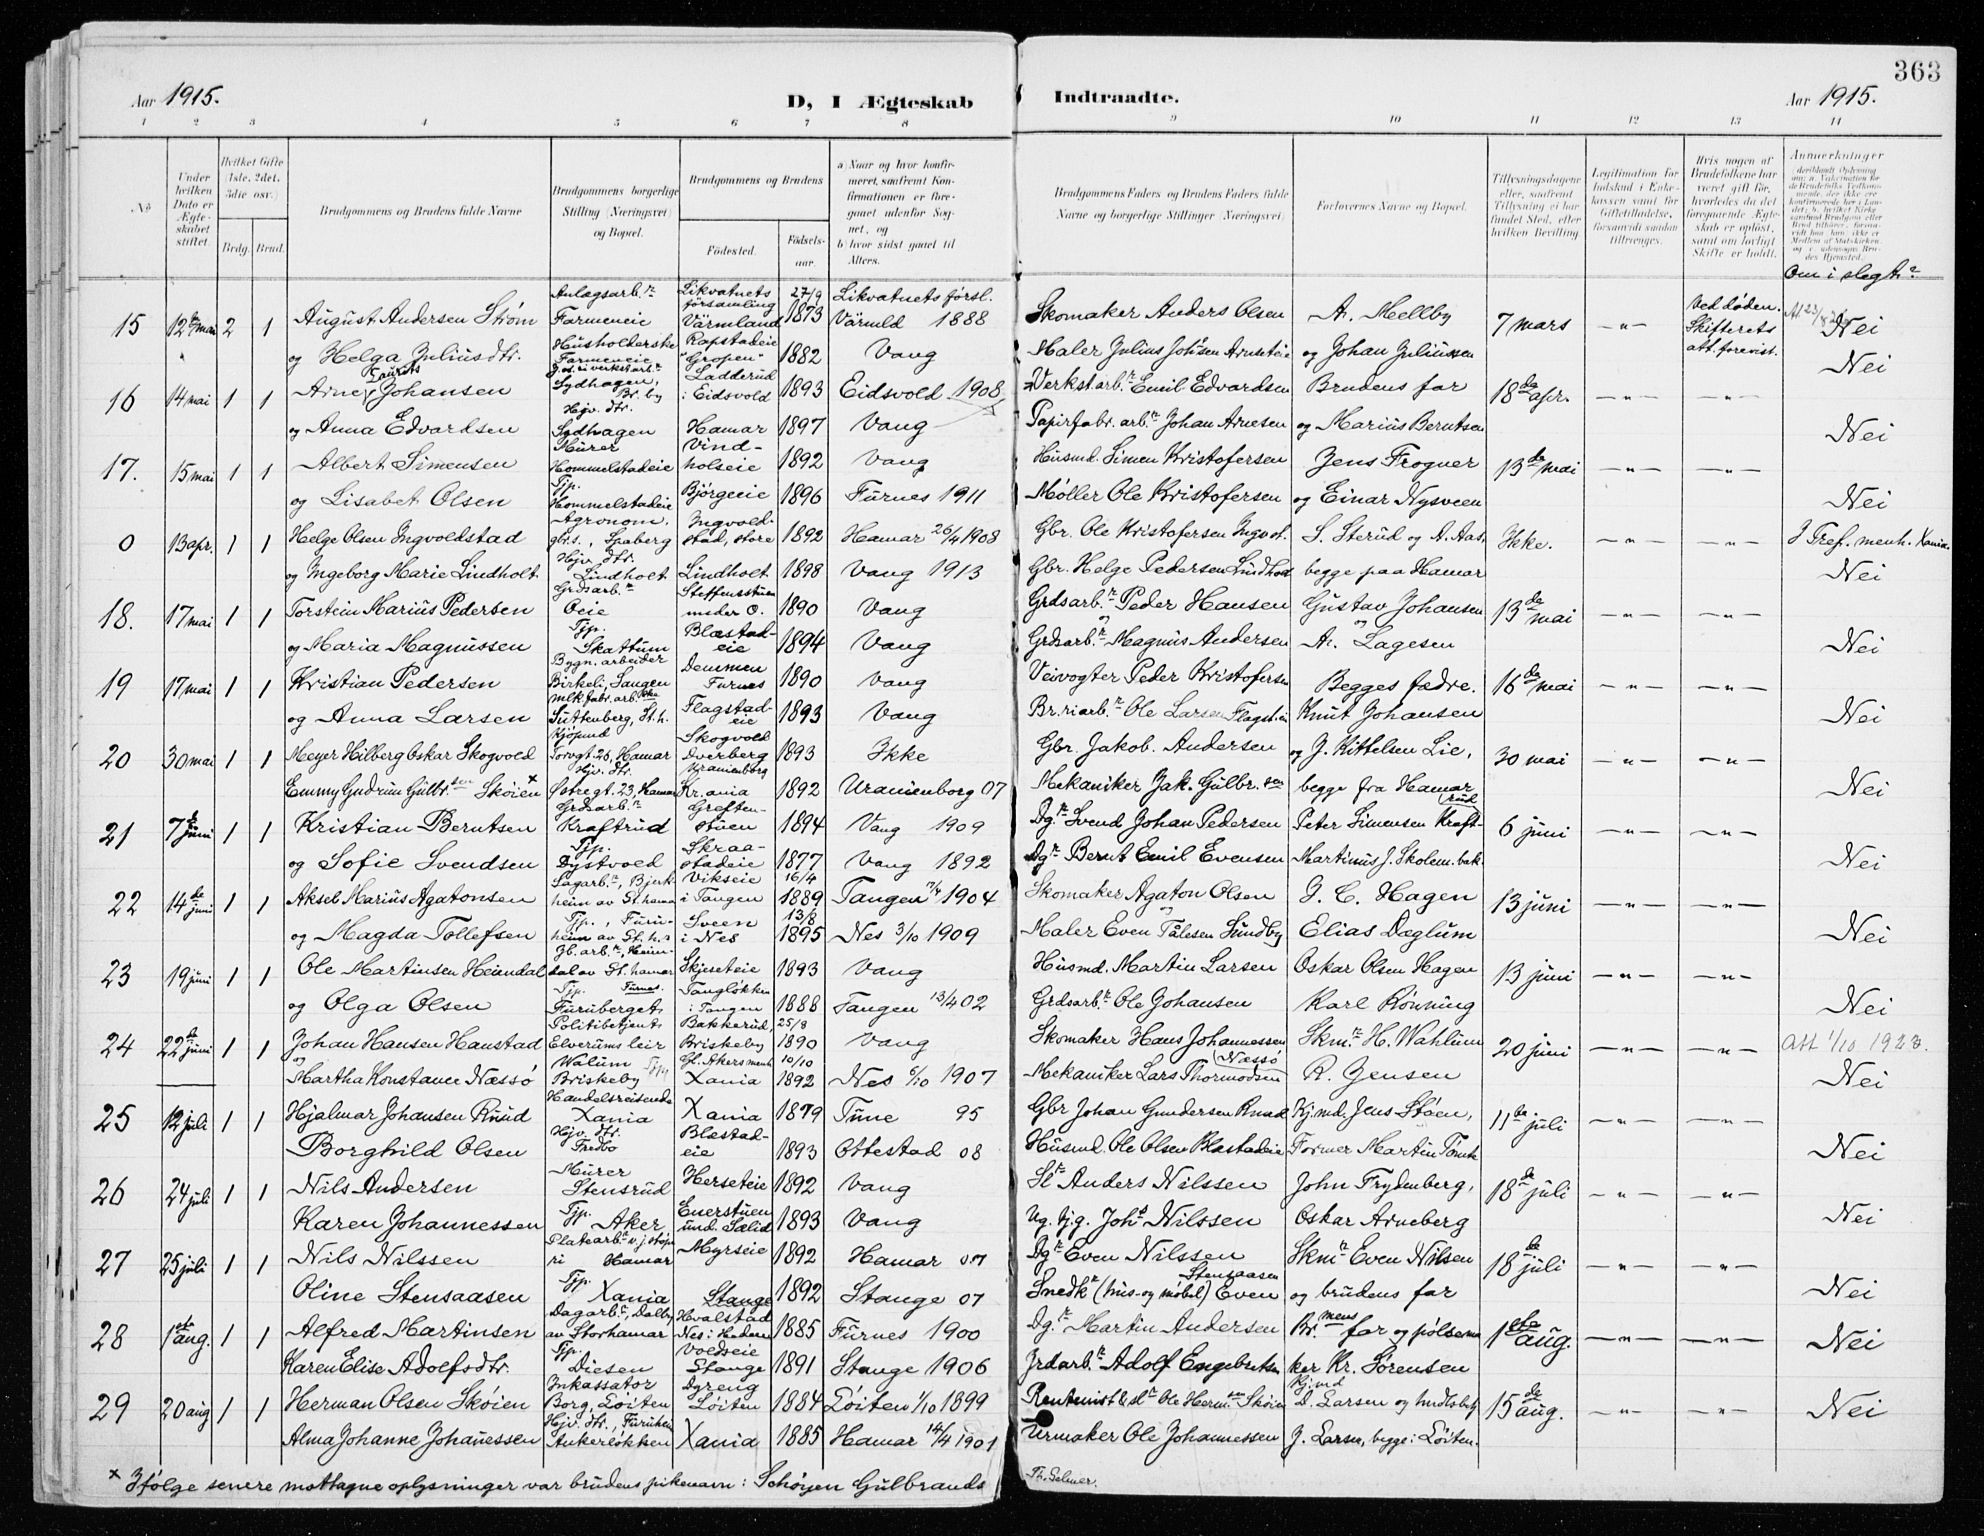 363
Aar 1915.
D, I Ægteskab
Indtraadte.
Aar 1915.
1 2 3 4 5 6 7 8 9 10 11 12 13 14
No
Under hvilken Dato er Ægteskabet stiftet.
Hvilket Gifte (1ste, 2det, 3die osv.)
Brdg. Brud.
Brudgommens og Brudens fulde Navne
Brudgommens borgerlige Stilling (Næringsvei) og Bopæl.
Brudgommens og Brudens
Fødested.
Fødsels-aar.
a) Naar og hvor konfirmeret, saafremt Konfirmationen er foregaaet udenfor Sognet, og
b) hvor sidst gaaet til Alters.
Brudgommens Faders og Brudens Faders fulde Navne og borgerlige Stillinger (Næringsvei)
Forlovernes Navne og Bopæl.
Tillysningsdagene eller, saafremt Tillysning ei har fundet Sted, efter hvilken Bevilling.
Legitimation for Indskud i Enkekassen samt for Giftetilladelse, forsaavidt saadan tiltrænges.
Hvis nogen af Brudefolkene har været gift før, hvorledes da det foregaaende Ægteskab er opløst, samt om lovligt Skifte er holdt.
Anmerkninger
Om i slegt?
15 12te mai 2 1 August Andersen Strøm Anlægsarb.r Farmeneie Likvatnets församling Värmland 27/9 1873 Likvatnets försl. Värmld 1888 Skomaker Anders Olsen A. Mellby 7 mars —"— Ved døden. Skifterets att. forevist. Nei
og Helga Juliusdtr. Husholderske Farmeneie Rapstadeie "Gropen" 1882 Vang Maler Julius Johsen Arneseteie og Johan Juliussen Nei
16 14 mai 1 1 Arne Laurits Johansen Sydhagen, Br.by Ladderud i Eidsvold 1893 Eidsvold 1908 Verkst.arb.r Emil Edvardsen Brudens far 18de apr. —"— —"—
og Anna Edvardsen Hjv. dtr. Sydhagen Hamar 1897 Vang Papirfabr. arb.r Johan Arnesen og Marius Berntsen Nei
17. 15 mai 1 1 Albert Simensen Murer Hommelstadeie Vindholseie 1892 Vang Husmd. Simen Kristofersen Jens Frogner 13de mai —"— —"—
og Lisabet Olsen Tjp. Hommelstadeie Bjørgeeie 1896 Furnes 1911 Møller Ole Kristofersen og Einar Nysveen Nei
0 13 apr. 1 1 Helge Olsen Ingvoldstad Agronom, gbr.s., Spaberg Ingvoldstad, store 1892 Hamar 26/4 1908 Gbr. Ole Kristofersen Ingvost. S. Sterud og A. Aas, Ikke. —"— —"— I Tref. menh. Xania.
og Ingeborg Marie Lindholt Hjv. dtr. Lindholt Lindholt 1898 Vang 1913 Gbr. Helge Pedersen Lindholt begge paa Hamar Nei
18. 17 mai 1 1 Torstein Marius Pedersen Grdsarb.r Oeie Steffensstuen nseder O. 1890 Vang Grdsarb.r Peder Hansen Gustav Johansen 13de mai —"— —"—
og Maria Magnussen Tjp. Skattum Blæstadeie 1894 Vang Grdsarb.r Magnus Andersen og A. Lagesen Nei
19 17 mai 1 1 Kristian Pedersen Bygn.arbeider Birkeli, Sangen Demmen Furnes 1890 Vang Veivogter Peder Kristofersen Begges fædre. 16de mai —"— —"—
og Anna Larsen Mlkfabr.arb.ske Suttenberg, St.h. Flagstadeie 1893 Vang Br.riarb.r Ole Larsen Flagst.ei Knut Johansen Nei
20 30 mai 1 1 Meyer Hilberg Oskar Skogvold Kjøpmd Torvgt. 26, Hamar Skogvold Dverberg 1893 Ikke Gbr. Jakob Andersen og J. Kittelsen Lie, 30 mai —"— —"—
Emmy Gudrun Gulbr.sen Skøien x Hjv. dtr. Østregt. 23, Hamar Uranienborg Kr.ania 1892 Uranienborg 07 Mekaniker Jak. Gulbr.sen begge fra Hamar Nei
21 7de juni 1 1 Kristian Berntsen Grdsarb.r Kraftrud Greftenstuen 1894 Vang 1909 Dg.r Svend Johan Pedersen Peter Simensen Kraftrud 6 juni —"— —"—
og Sofie Svendsen Tjp. Dystvold Skraastadeie 1877 Vang 1892 Dg.r Bernt Emil Evensen Martinus J. Skolem.bak. Nei
22 14de juni 1 1 Aksel Marius Agatonsen Sagarb.r, Bjerkheim av St.hamar Vikseie i Tangen 16/4 1889 Tangen 17/4 1904 Skomaker Agaton Olsen J. C. Hagen 13 juni —"— —"—
og Magda Tollefsen Tjp., Furuheim av St.h.r Sveen i Nes 13/8 1895 Nes 3/10 1909 Maler Even Tålesen Sundby og Elias Dæglum Nei
23 19 juni 1 1 Ole Martinsen Heimdal Gb.arb.r, Heimdal av St.hamar Skjeseteie 1893 Vang Husmd. Martin Larsen Oskar Olsen Hagen 13 juni —"— —"—
og Olga Olsen Tjp. Furnes. Furuberget Tangløkken i Tangen 1888 Tangen 13/4 02 Grdsarb.r Ole Johansen Karl Rønning Nei
24 22de juni 1 1 Johan Hansen Hanstad Politibetjent Elverums leir Bakkerud, Briskeby 25/8 1890 Vang Skomaker Hans Johannessen Skm.r H. Wahlum 20 juni —"— —"— Att 1/10 1923.
og Martha Konstance Næssø Walum Briskeby Gl. Akers menh Xania 10/10 1892 Nes 6/10 1907 Mekaniker Lars Thormodsen Næssø R. Jensen Nei
25 12 juli 1 1 Hjalmar Johansen Ruud Handelsreisende Xania Xania 1879 Tune 95 Gbr Johan Gundersen Ruud Kj.md. Jens Støen, 11te juli —"— —"—
Borghild Olsen Hjv. dtr. Fredbo Blæstadeie 1893 Ottestad 08 Husmd. Ole Olsen Blæstadeie Former Martin Tomt Nei
26 24 juli 1 1 Nils Andersen Murer Stensrud Herseteie 1892 Vang Sl.r Anders Nilssen John Frydenberg, 18de juli —"— —"—
Karen Johannessen Tjp. Aker Enerstuen und. Sælid 1893 Vang Ug. tj.g. Joh.s Nilssen Oskar Arneberg Nei
27 25 juli 1 1 Nils Nilssen Platearb.r v. j.støperi Hamar Myrseie 1892 Hamar 07 Dg.r Even Nilssen Skm.r Even Nilsen 18de juli —"— —"—
Oline Stensaasen Tjp. Xania Stange 1892 Stange 07 Snedk.r (hus- og møbel) Even Stensaasen og brudens far Nei
28 1ste aug. 1 1 Alfred Martinsen Dagarb.r, Dalby av Storhamar Hvalstad Nes i Hedem 1885 Furnes 1900 Dg.r Martin Andersen Br.mens far og pølsema 1ste aug. —"— —"— Nei
Karen Elise Adolfsdtr. Tjp. Diesen Voldseie Stange 1891 Stange 1906 Jrdarb.r Adolf Engebretsen ker Kr. Sørensen
29 20 aug 1 1 Herman Olsen Skøien Inkassator Borg, Løiten Dyreng Løiten 1884 Løiten 1/10 1899 Rentenist & sl.r Ole Herm.sen Skøien Kj.md D. Larsen og hndlsbetj. 15de aug. —"— —"— Nei
Alma Johanne Johanessen Hjv. dtr., Furuheim Ankerløkken Xania 1885 Hamar 14/4 1901 Urmaker Ole Johannessen J. Larsen, begge i Løiten.
x Ifølge senere mottagne oplysninger var brudens pikenavn: Schøyen Gulbrands
Th. Selmer.